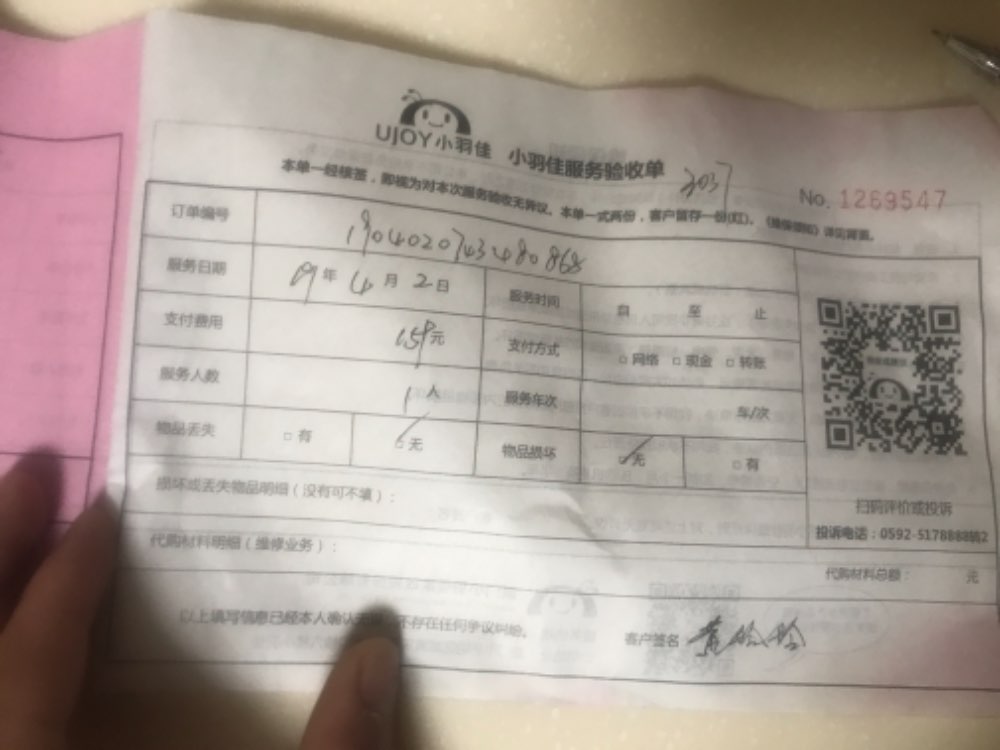 UJOY小羽佳 小羽佳服务验收单
3037
No. 1269547
本单一经核签，即视为对本次服务验收无异议。本单一式两份，客户留存一份(红)。《维保须知》详见背面。
订单编号 1904020743480868
服务日期 19年4月2日 服务时间 自 至 止
支付费用 159元 支付方式 □网络 □现金 □转账
服务人数 1人 服务年次 年/次
物品丢失 □有 ☑无 物品损坏 ☑无 □有
损坏或丢失物品明细（没有可不填）：
扫码评价或投诉
投诉电话：0592-5178888转2
代购材料明细（维修业务）：
代购材料总额： 元
以上填写信息已经本人确认无 不存在任何争议纠纷。
客户签名：黄